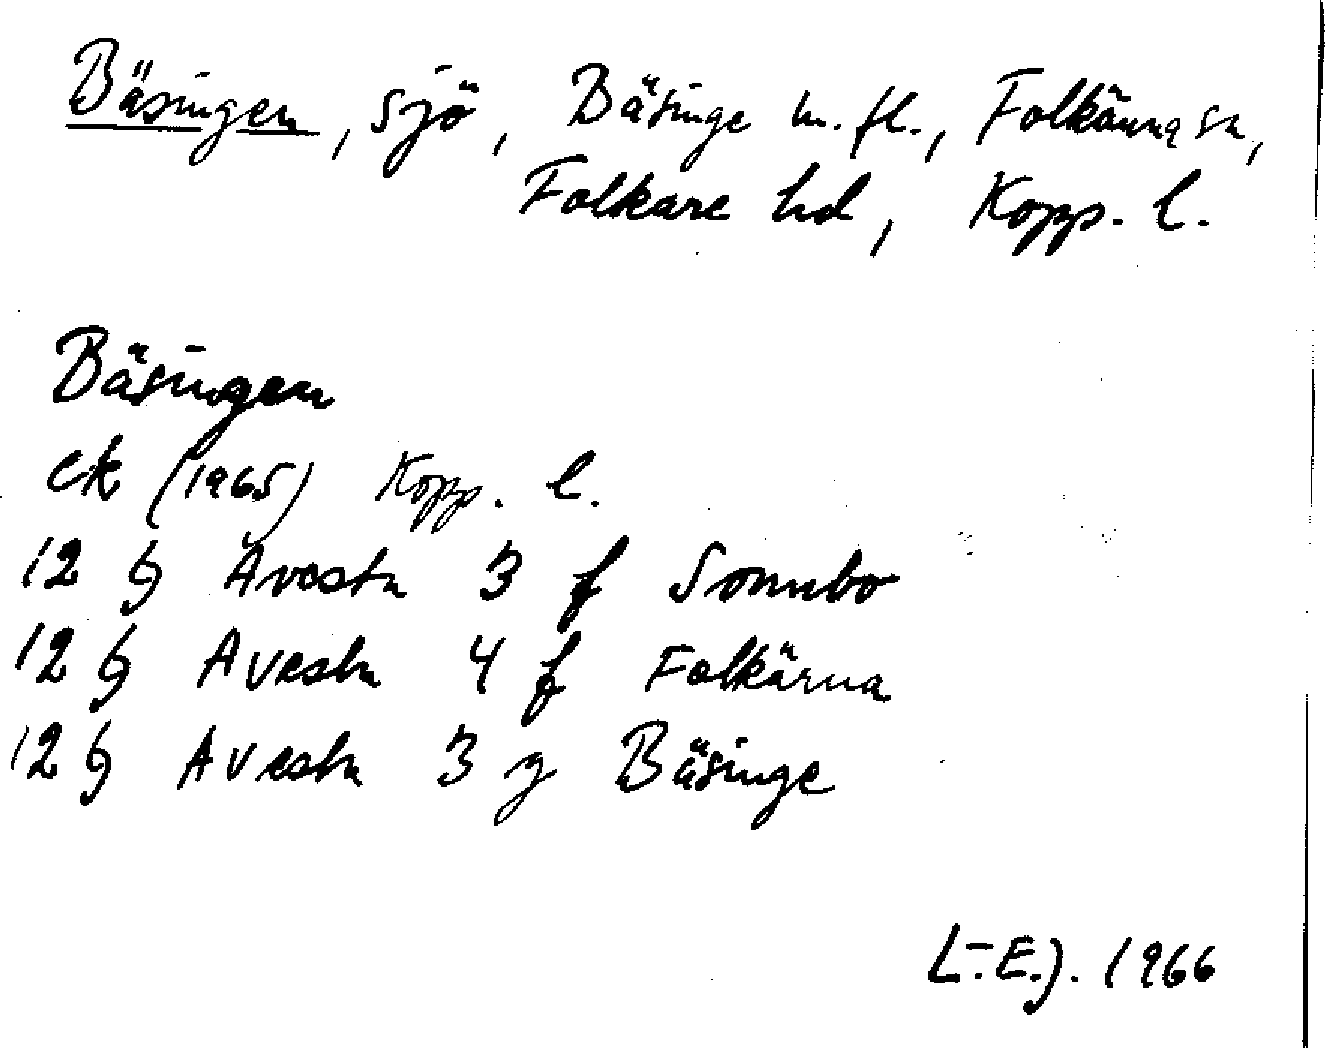 Bäsingen, sjö, Bäsinge m. fl., Folkärna sn,
Folkare hd, Kopp. l.
Bäsingen
ek (1965) Kopp. l.
12 G Avesta 3 f Sonnbo
12 G Avesta 4 f Folkärna
12 G Avesta 3 g Bäsinge
L.-E.J. 1966